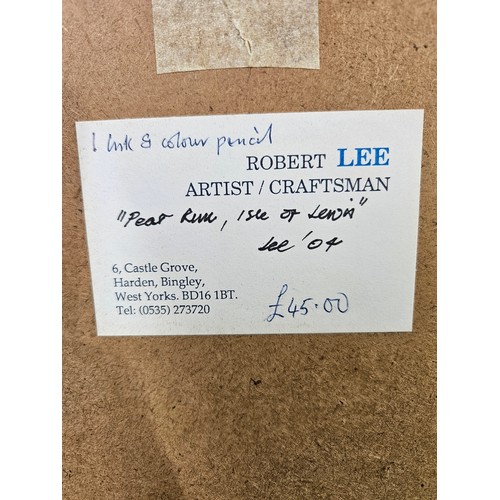 1 Ink & colour pencil
ROBERT LEE
ARTIST / CRAFTSMAN
"Peat Run, Isle of Lewis"
Lee '04
6, Castle Grove,
Harden, Bingley,
West Yorks. BD16 1BT.
Tel: (0535) 273720
£45.00